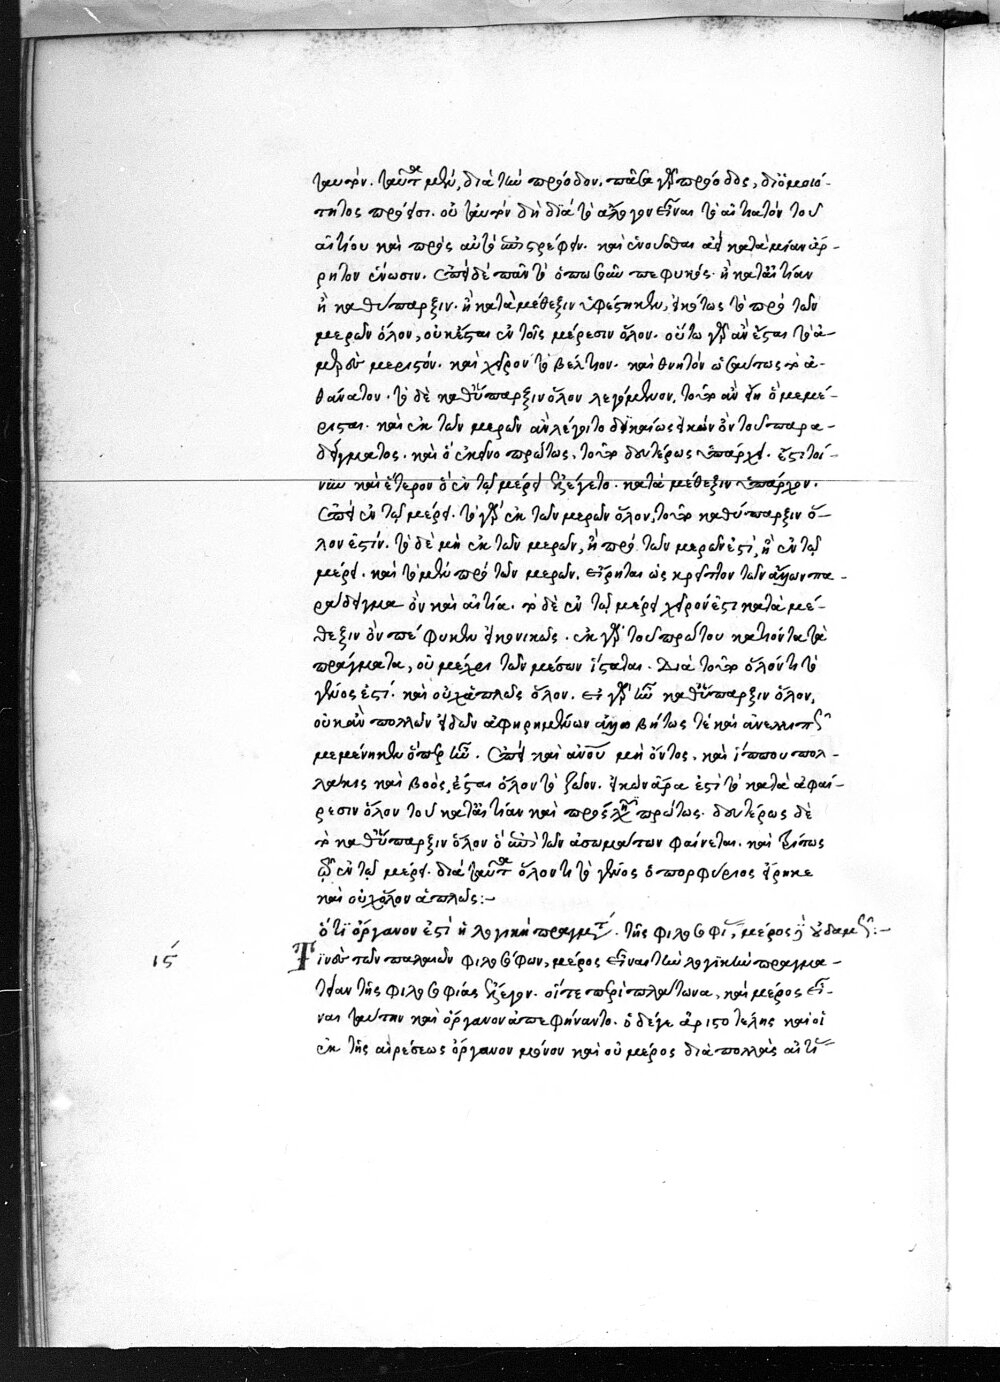 ταυτόν. ταῦτα μὲν, διὰ τὴν πρόοδον. πᾶσα γὰρ πρόοδος, δι' ὁμοιό-
τητος πρόεισι. οὐ ταυτὸν δὴ διὰ τὸ ἄλογον εἶναι τὸ αἰτιατὸν τοῦ
αἰτίου καὶ πρὸς αὐτὸ ἐπιστρέφειν. καὶ ἑνοῦσθαι ἀεὶ κατὰ μίαν ἄρ-
ρητον ἕνωσιν. ἐπεὶ δὲ πᾶν τὸ ὁπωσοῦν πεφυκός. ἢ κατ' αἰτίαν
ἢ καθ' ὕπαρξιν. ἢ κατὰ μέθεξιν ὑφέστηκεν, εἰκότως τὸ πρὸ τῶν
μερῶν ὅλον, οὐκ ἔσται ἐν τοῖς μέρεσιν ὅλον. οὕτω γὰρ ἂν ἔσται τὸ ἀ-
μερὲς μεριστόν. καὶ χεῖρον τὸ βέλτιον. καὶ θνητὸν ὡσαύτως τὸ ἀ-
θάνατον. τὸ δὲ καθ' ὕπαρξιν ὅλον λεγόμενον, τοῦτο ἂν εἴη ὃ μεμέ-
ρισται. καὶ ἐκ τῶν μερῶν ἂν λέγοιτο δικαίως εἰκὼν ὂν τοῦ παρα-
δείγματος. καὶ ὃ ἐκεῖνο πρώτως, τοῦτο δευτέρως ὑπάρχει. ἔστι τοί-
νυν καὶ ἕτερον ὃ ἐν τῷ μέρει ἐλέγετο. κατὰ μέθεξιν ὑπάρχον.
ἐπεὶ ἐν τῷ μέρει. τὸ γὰρ ἐκ τῶν μερῶν ὅλον, τοῦτο καθ' ὕπαρξιν ὅ-
λον ἐστίν. τὸ δὲ μὴ ἐκ τῶν μερῶν, ἢ πρὸ τῶν μερῶν ἐστὶ, ἢ ἐν τῷ
μέρει. καὶ τὸ μὲν πρὸ τῶν μερῶν, εἴρηται ὡς κρεῖττον τῶν ἄλλων πα-
ράδειγμα ὂν καὶ αἰτία. τὸ δὲ ἐν τῷ μέρει χεῖρόν ἐστι κατὰ μέ-
θεξιν ὂν πέφυκεν εἰκονικῶς. ἐκ γὰρ τοῦ πρώτου κατιόντα τὰ
πράγματα, οὐ μέχρι τῶν μέσων ἵσταται. Διὰ τοῦτο ὅλόν τι τὸ
γένος ἐστί. καὶ οὐχ ἁπλῶς ὅλον. εἰ γὰρ ἦν καθ' ὕπαρξιν ὅλον,
οὐκ ἂν πολλῶν εἰδῶν ἀφῃρημένων ἀλωβήτως τὲ καὶ ἀνελλιπῶς
μεμένηκεν ὅπερ ἦν. ἐπεὶ καὶ ἀνοῦ μὴ ὄντος, καὶ ἵππου πολ-
λάκις καὶ βοός, ἔσται ὅλον τὸ ζῶον. εἰκὼν ἄρα ἐστὶ τὸ κατὰ ἀφαί-
ρεσιν ὅλον τοῦ κατ' αἰτίαν καὶ πρώτως. δευτέρως δὲ
τὸ καθ' ὕπαρξιν ὅλον ὃ ἐπὶ τῶν ἀσωμάτων φαίνεται. καὶ τρίτως
τὸ ἐν τῷ μέρει. διὰ ταῦτα ὅλόν τι τὸ γένος ὁ πορφύριος εἴρηκε
καὶ οὐχ ὅλον ἁπλῶς:~
ὅτι ὄργανον ἐστὶ ἡ λογικὴ πραγματεία. τῆς φιλοσοφίας, μέρος δὲ οὐδαμῶς:~
ις Τινὲς τῶν παλαιῶν φιλοσόφων, μέρος εἶναι τὴν λογικὴν πραγμα-
τείαν τῆς φιλοσοφίας ἔλεγον. οἵ τε περὶ πλάτωνα, καὶ μέρος εἶ-
ναι ταύτην καὶ ὄργανον ἀπεφήναντο. ὁ δέ γε ἀριστοτέλης καὶ οἱ
ἐκ τῆς αἱρέσεως ὄργανον μόνον καὶ οὐ μέρος διὰ πολλὰς αἰτίας